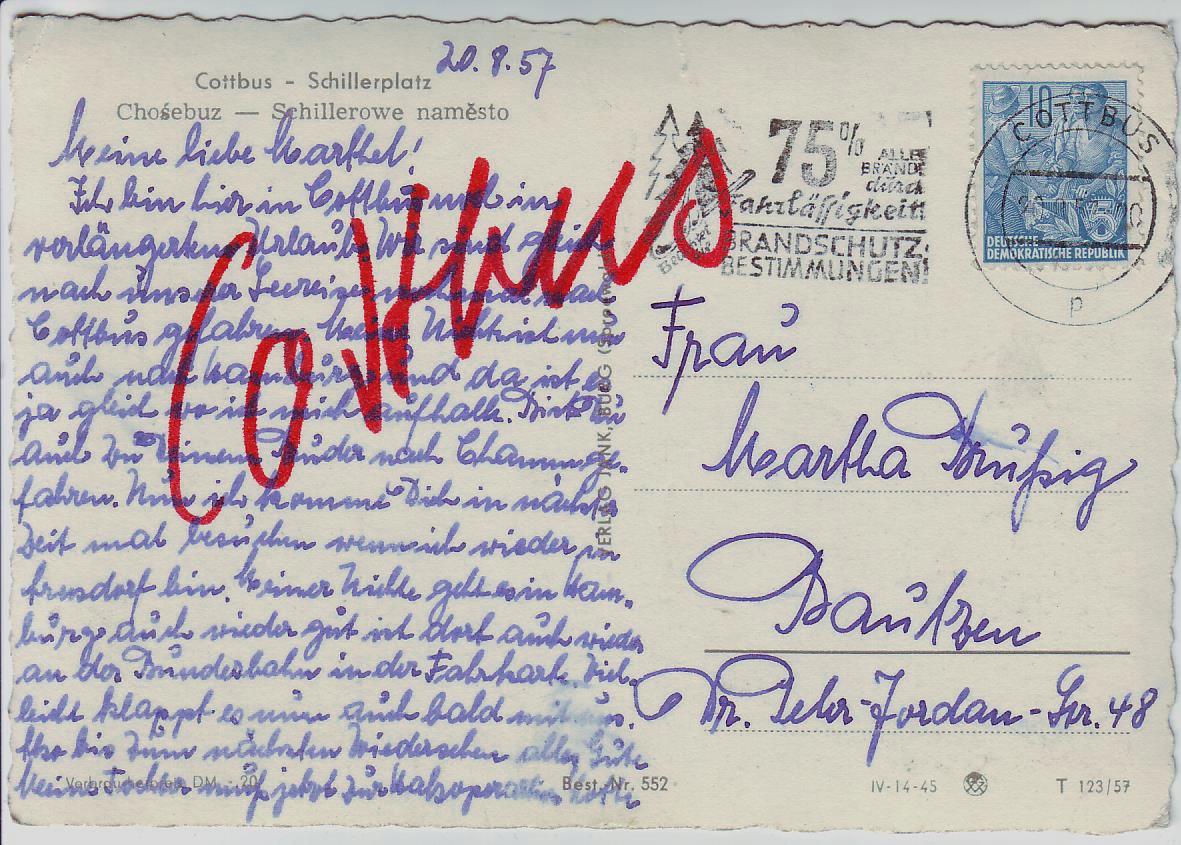 20.8.57
Cottbus – Schillerplatz
Chośebuz — Schillerowe naměsto
Meine liebe Marthel!
Ich bin hier in Cottbus und in
verlängerten Urlaub. Wir sind gleich
nach unserer Seereise nach
Cottbus gefahren. Meine Nichte ist nun
auch nach Hamburg und da ist es
ja gleich wo ich mich aufhalte. Bist Du
auch zu Deinem Bruder nach Cham ge-
fahren. Nun ich komme Dich in nächster
Zeit mal besuchen wenn ich wieder in
bin. Meiner Nichte geht es in Ham-
burg auch wieder gut ist dort auch wieder
an der Bundesbahn in der Fahrkart. Viel-
leicht klappt es nun auch bald mit uns.
Also bis zum nächsten Wiedersehen alles Gute
Meine Tochter muß jetzt zur Halsoperation
Cottbus
Verbraucherpreis DM -.20
Best. Nr. 552
VERLAG TANK, BURG (Spreewald)
75% ALLER
BRÄNDE
durch
Fahrlässigkeit!
BRANDSCHUTZ-
BESTIMMUNGEN!
10
DEUTSCHE
DEMOKRATISCHE REPUBLIK
COTTBUS
p
Frau
Martha
Bautzen
Dr. Peter-Jordan-Str. 48
IV-14-45
T 123/57